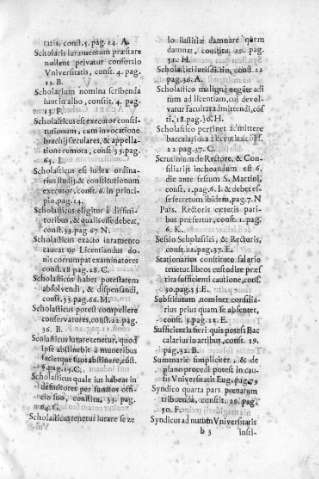 tatis. const. 5. pag. 14. A.
Scholaris iuramentum præstare
nollens privatur consortio
Vniversitatis, constit. 4. pag.
12. B.
Scholarium nomina scribenda
sunt in albo, constit. 4. pag.
13. F.
Scholasticus est executor consti-
tutionum, cum invocatione
brachij seculares, & appellatione
remota, const. 33. pag.
65. I.
Scholasticus est iudex ordina-
rius studij, & constitutionum
executor, const. 6. in princi-
pio pag. 14.
Scholasticus eligitur à diffini-
toribus, & qualis esse debet,
const. 32. pag 67 N.
Scholasticus exacto iuramento
cauet ut Licentiandus do-
nis corrumpat examinatores
const. 18 pag. 18. C.
Scholasticus habet potestatem
absolvendi, & dispensandi,
const. 33 pag. 66. M.
Scholasticus potest compellere
conservatores, const. 22 pag.
36. B.
Scolasticus iurare tenetur, quod
ipse abstinebit à muneribus
facietque suos abstinere, const.
6. pag. 15. C.
Scholasticus quale ius habeat in
defectores per suum of offi-
cio suo, constitu. 33. pag.
64. G.
Scholasticus tenetur iurare se ze
lo iustitiæ damnare quem
damnat, constitu. 20. pag.
32. H.
Scholastici iurisdictio, const. 22
pag. 36. A.
Scholastico maligne negante ac-
tum ad licentiam, devol-
vatur facultas admittendi, cōs-
tit. 18. pag. 30. H.
Scholastico pertinet admittere
baccalarios à licentia, const.
22 pag. 37. C.
Scrutinium de Rectore, & Con-
siliarijs inchoandum est 6.
die ante festum S. Matthæi,
const. 1. pag. 6. I. & debet es-
se secretum ibidem, pag. 7. N
Pars. Rectoris cæteris pari-
bus præfertur, const. 1. pag.
6. K.
Sessio Subphisici, & Rectoris,
const. 22. pag. 37. E.
Stationarius constituto salario
tenetur libros custodire præs-
tita sufficienti cautione, const.
30. pag. 53. E.
Substitutum nominet consilia-
rius prius quam se absentet,
const. 3. pag. 12. E.
Sufficientia fieri quis potest Bac
calarius in artibus, const. 19.
pag. 32. B.
Summarie simpliciter, & de
plano procedi potest in cau-
sis Vniversitatis Eug. pag. 79
Syndico quarta pars pœnarum
tribuenda, constit. 26. pag.
50. F.
Syndicus ad nutum Vniversitatis
b 3 insti-